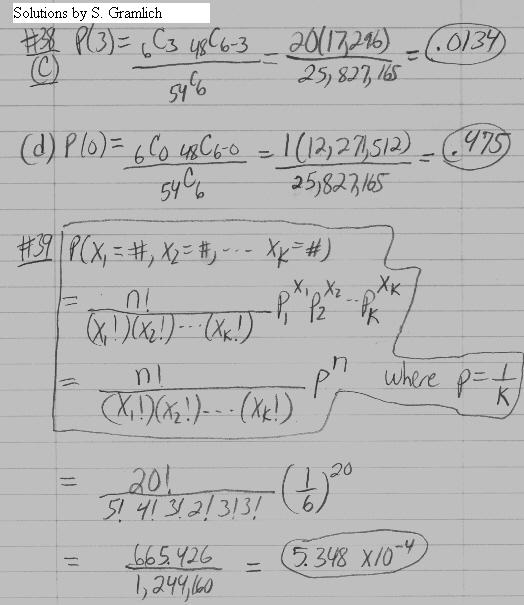 Solutions by S. Gramlich
#38 (c) P(3) = ₆C₃ ₄₈C₆₋₃ / ₅₄C₆ = 20(17,296) / 25,827,165 = .0134
(d) P(0) = ₆C₀ ₄₈C₆₋₀ / ₅₄C₆ = 1(12,271,512) / 25,827,165 = .475
#39 P(X₁=#, X₂=#, ... X_K=#)
= n! / (X₁!)(X₂!)...(X_K!) P₁^X₁ P₂^X₂ ... P_K^X_K
= n! / (X₁!)(X₂!)...(X_K!) P^n where P = 1/K
= 20! / 5! 4! 3! 2! 3! 3! (1/6)^20
= 665.426 / 1,244,160 = 5.348 X10⁻⁴